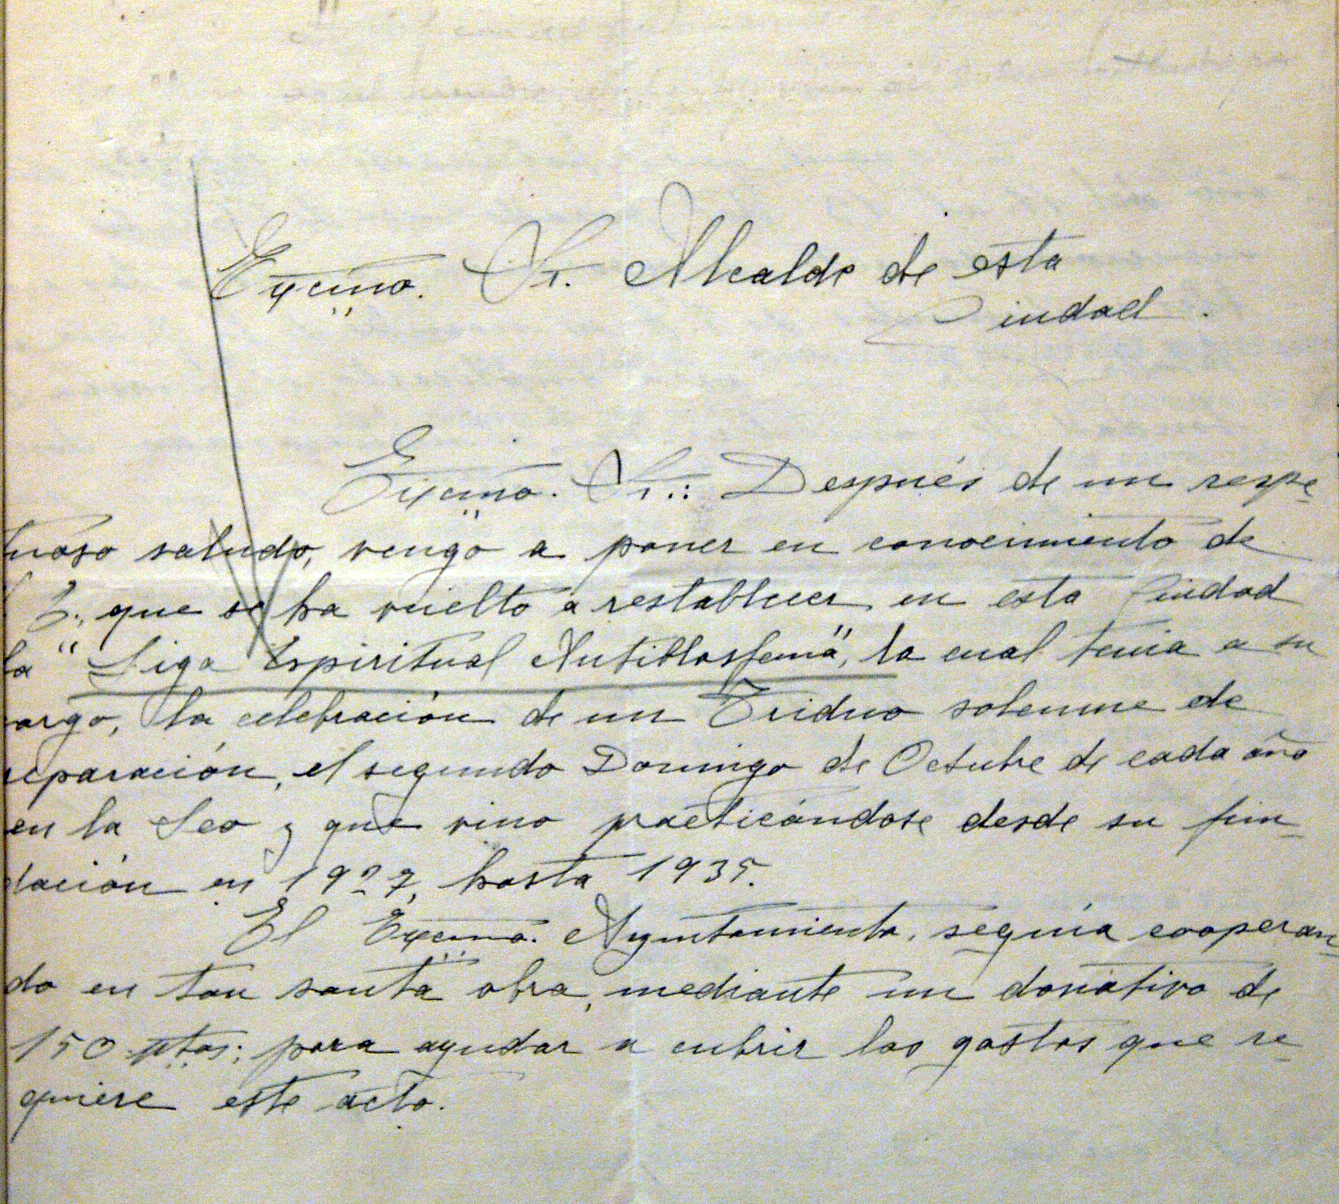 Excmo. Sr. Alcalde de esta
Ciudad.
Excmo. Sr.: Después de un respe-
tuoso saludo, vengo a poner en conocimiento de
E. que se ha vuelto a restablecer en esta Ciudad
la "Liga Espiritual Antiblasfema", la cual tenia a su
cargo, la celebración de un Triduo solemne de
reparación, el segundo Domingo de Octubre de cada año
en la Seo y que vino practicándose desde su fun-
dación en 1927, hasta 1935.
El Excmo. Ayuntamiento, seguía cooperan-
do en tan santa obra, mediante un donativo de
150 ptas; para ayudar a cubrir los gastos que re-
quiere este acto.